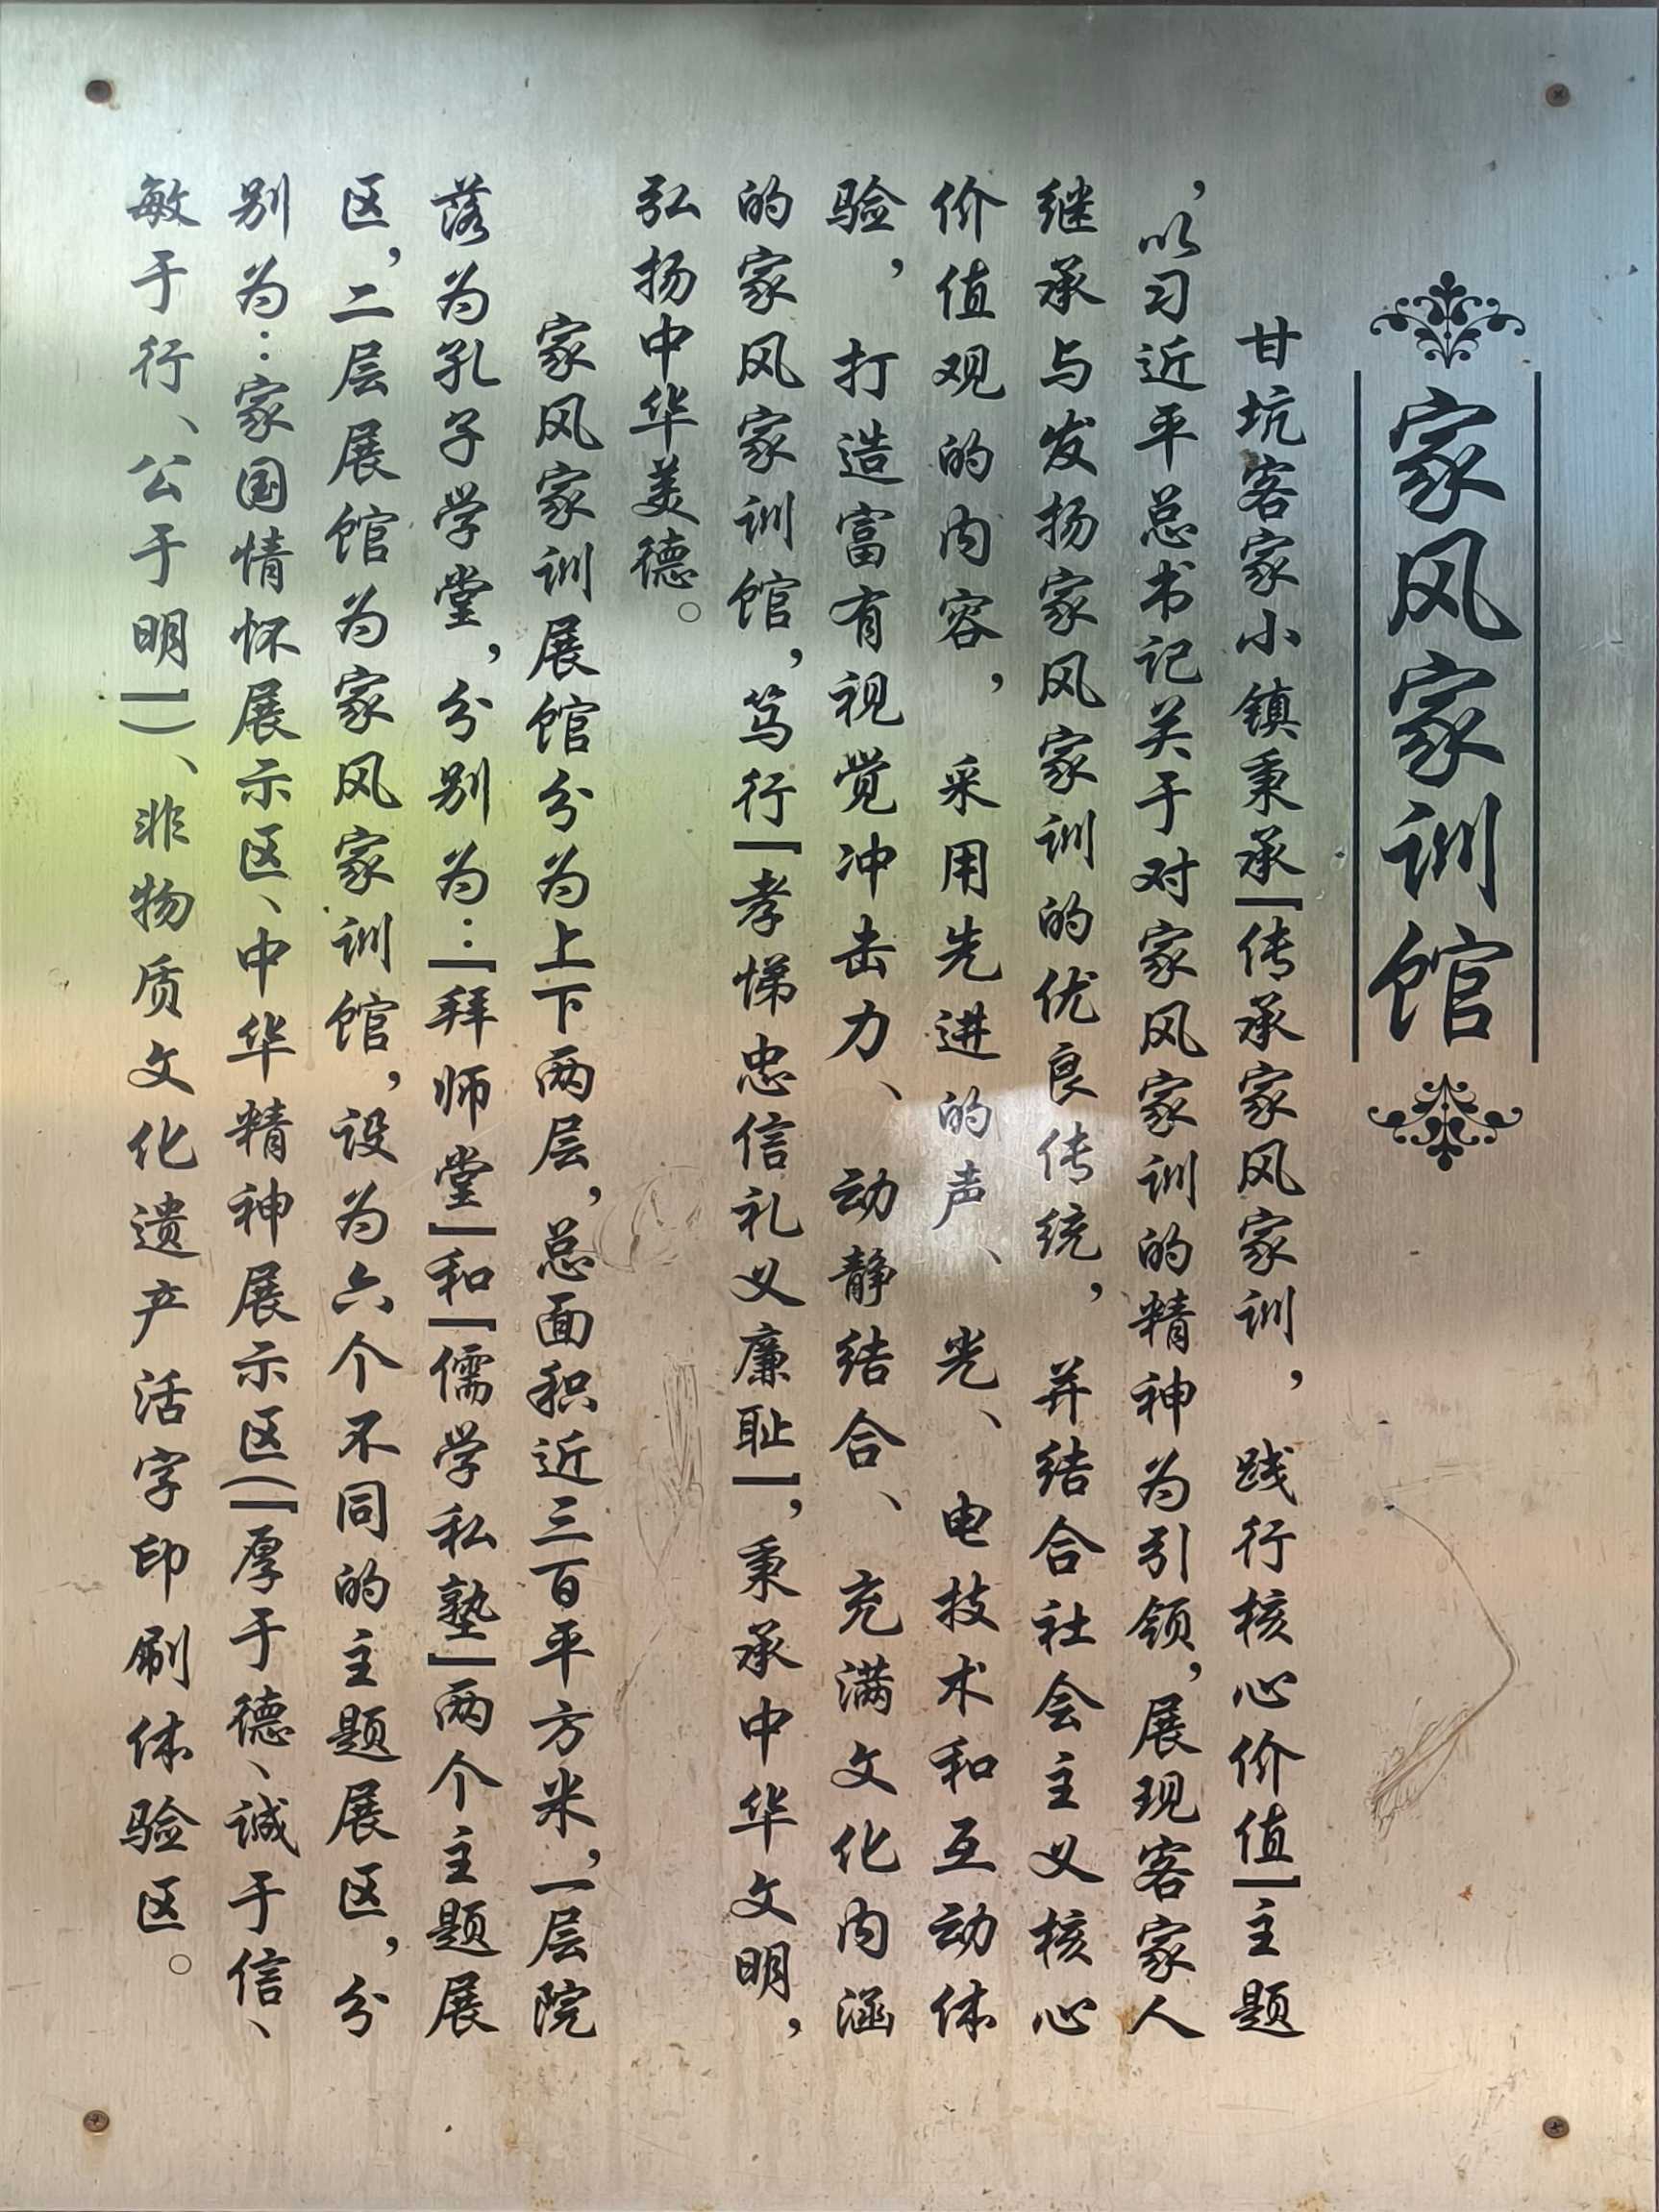 家风家训馆
甘坑客家小镇秉承【传承家风家训，践行核心价值】主题
，以习近平总书记关于对家风家训的精神为引领，展现客家人
继承与发扬家风家训的优良传统，并结合社会主义核心
价值观的内容，采用先进的声、光、电技术和互动体
验，打造富有视觉冲击力、动静结合、充满文化内涵
的家风家训馆，笃行【孝悌忠信礼义廉耻】，秉承中华文明，
弘扬中华美德。
家风家训展馆分为上下两层，总面积近三百平方米，一层院
落为孔子学堂，分别为：【拜师堂】和【儒学私塾】两个主题展
区，二层展馆为家风家训馆，设为六个不同的主题展区，分
别为：家国情怀展示区、中华精神展示区（【厚于德、诚于信、
敏于行、公于明】）、非物质文化遗产活字印刷体验区。